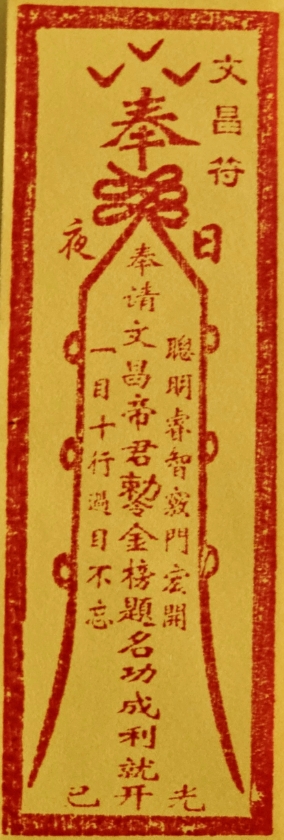 文昌符
奉
日
夜
聰明睿智竅門宏開
奉请文昌帝君勅令金榜題名功成利就
一目十行過目不忘
光
开
己